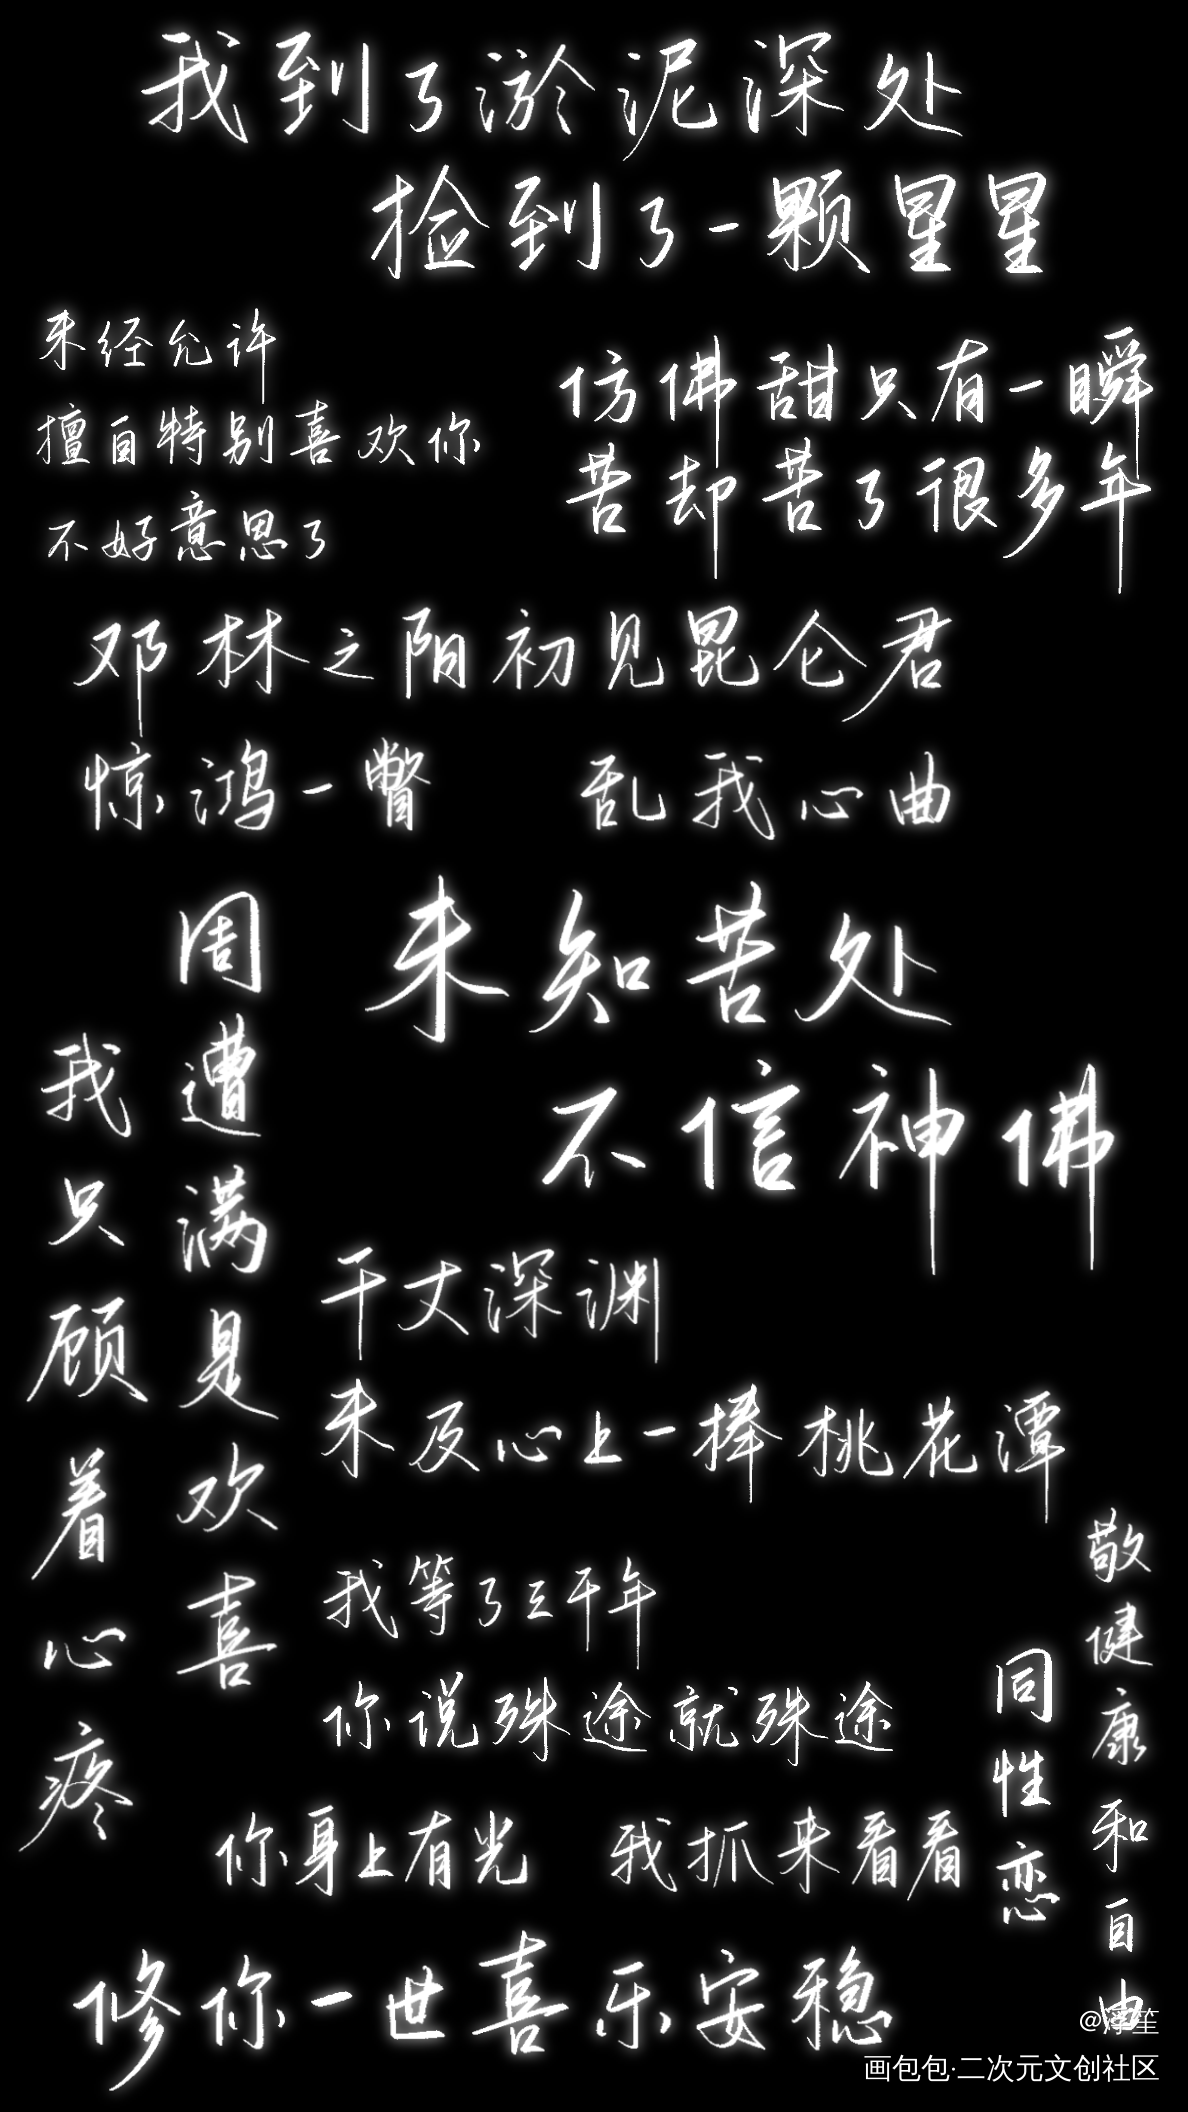 我到了淤泥深处
捡到了一颗星星
未经允许
擅自特别喜欢你
不好意思了
仿佛甜只有一瞬
苦却苦了很多年
邓林之阳初见昆仑君
惊鸿一瞥 乱我心曲
未知苦处
不信神佛
周遭满是欢喜
我只顾着心疼
千丈深渊
未及心上一捧桃花潭
我等了三千年
你说殊途就殊途
敬健康和自由
同性恋
你身上有光 我抓来看看
修你一世喜乐安稳
@浮笙
画包包·二次元文创社区